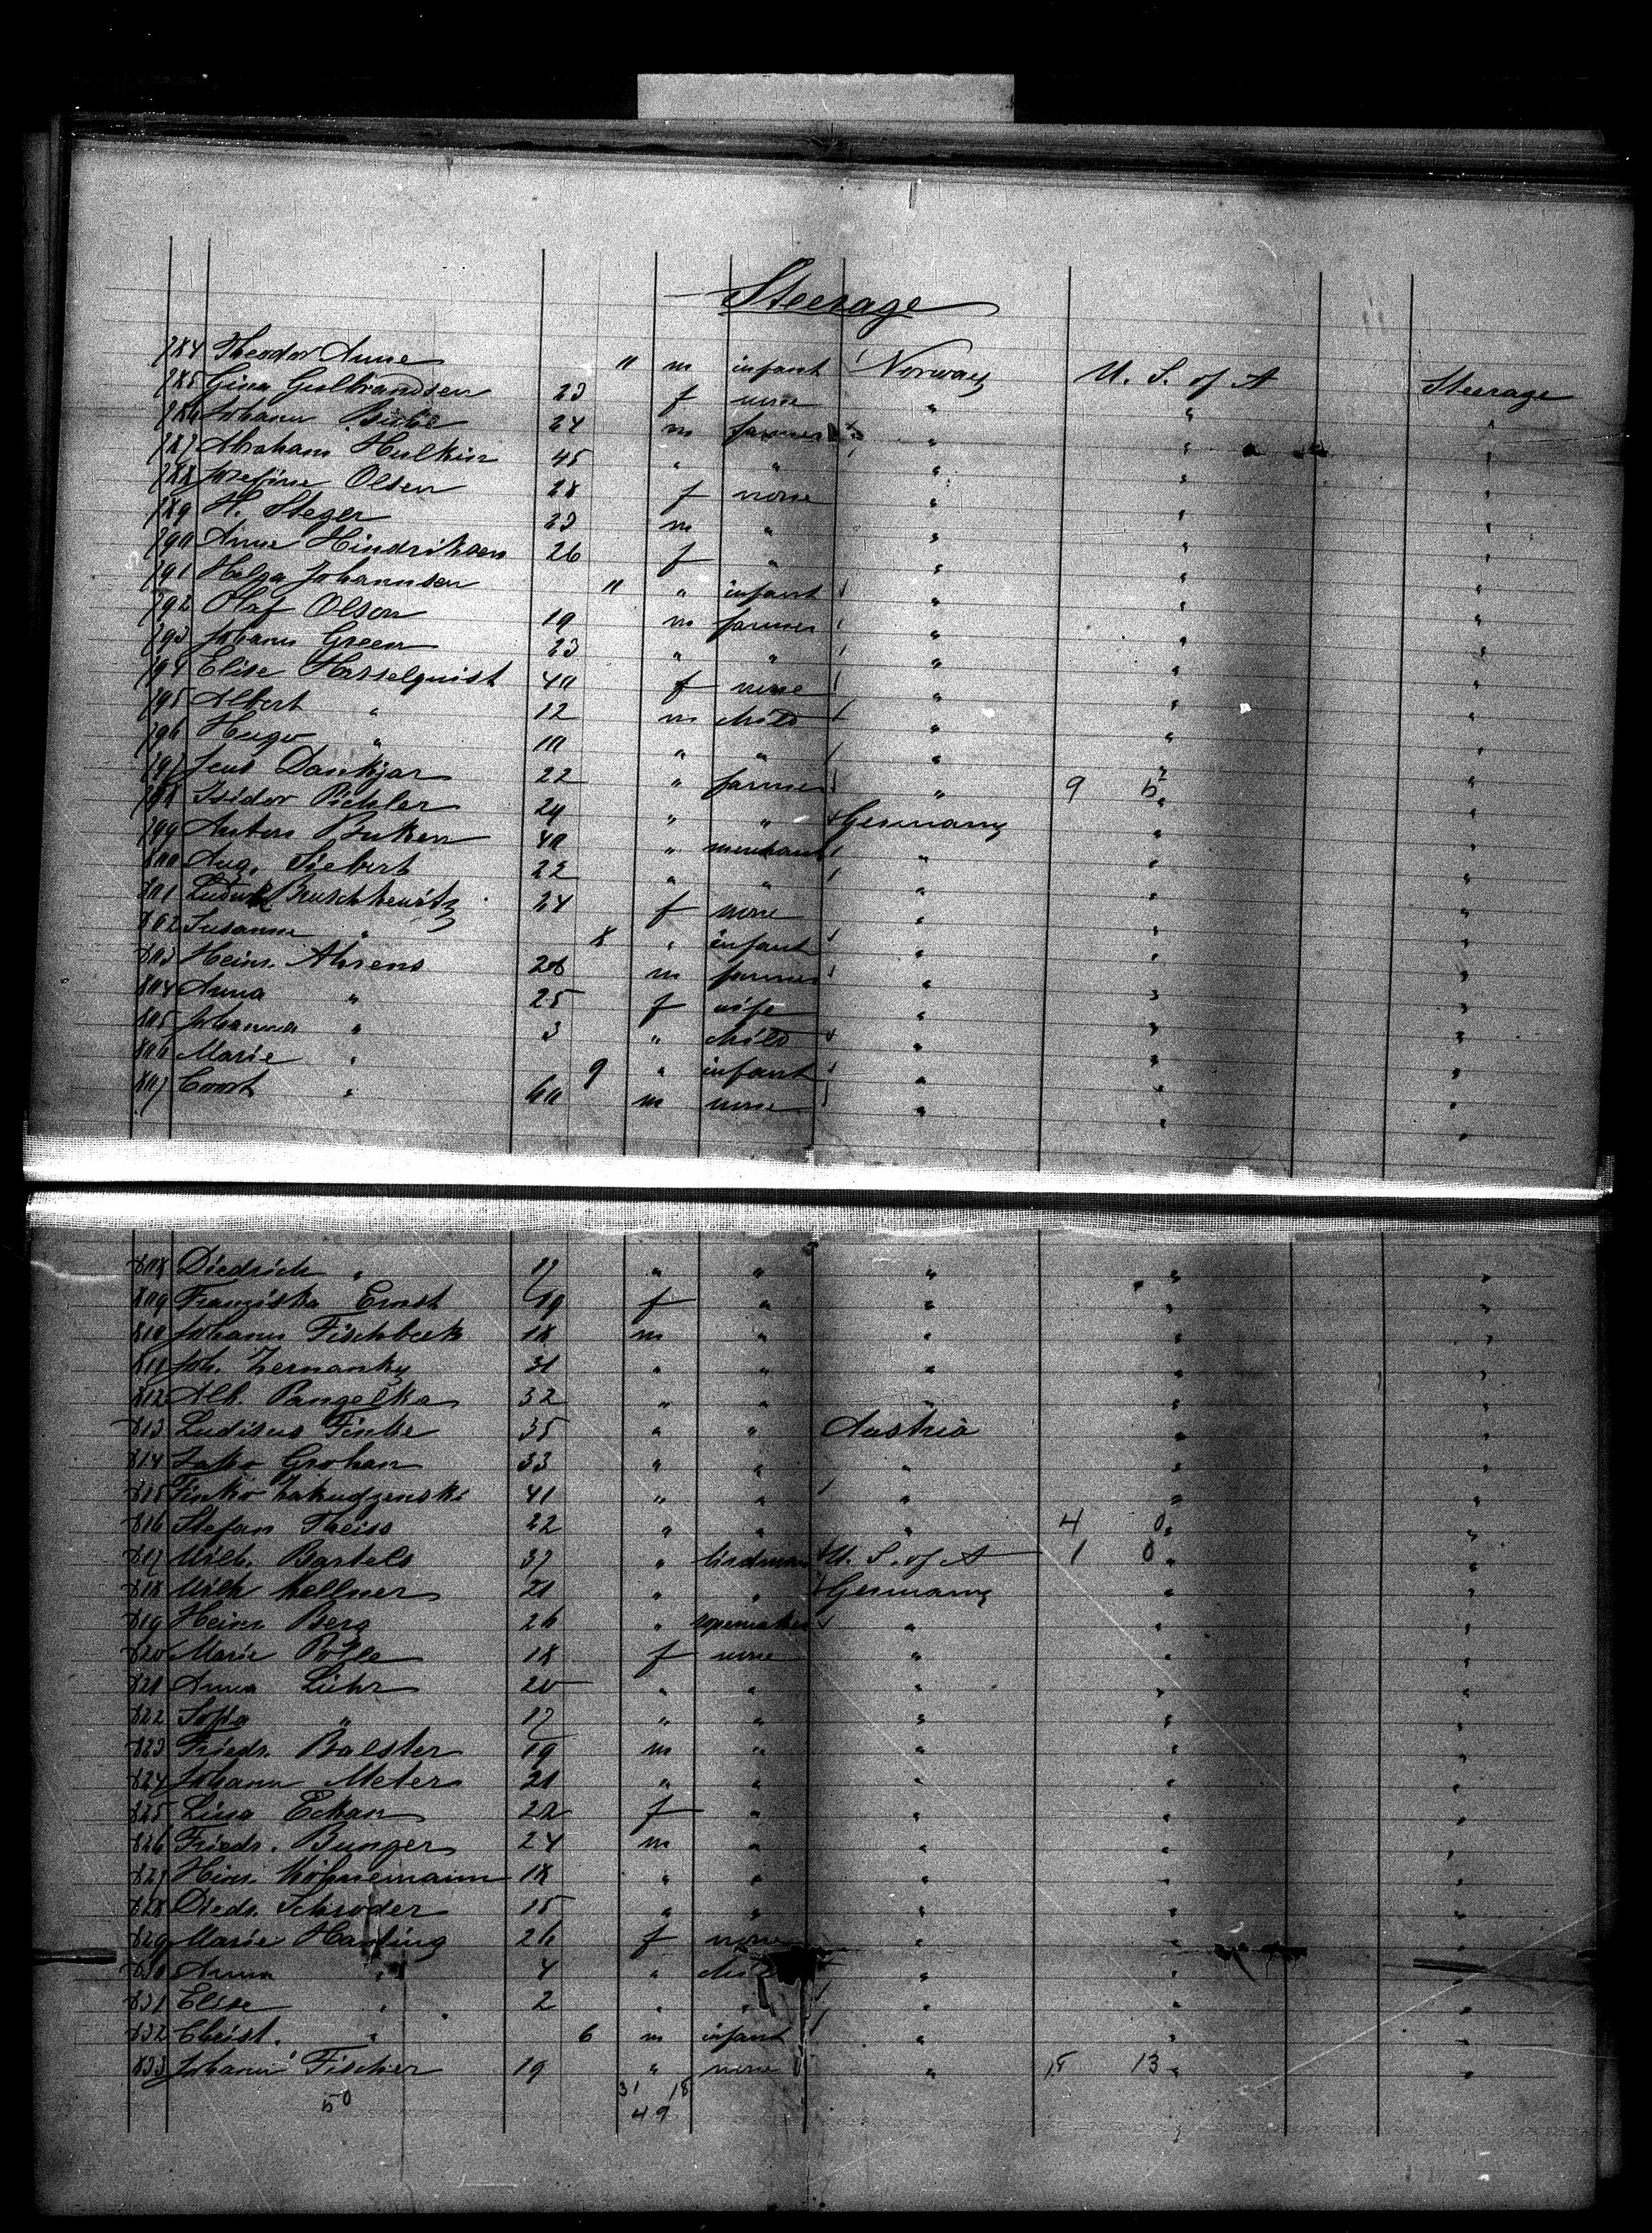 Steerage
784 Theodor Anne " m infant Norway U. S. of A Steerage
785 Gina Gulbrandsen 23 f none " " "
786 Johann 24 m farmer " " "
787 Abraham Hulkin 45 " " " " "
788 Josefine Olsen 28 f none " " "
789 H. Steger 23 m " " " "
790 Anne Hindriksen 26 f " " " "
791 Helga Johannsen " " infant " " "
792 Olaf Olson 19 m farmer " " "
793 Johann Green 23 " " " " "
794 Elise Hasselquist 40 f none " " "
795 Albert " 12 m child " " "
796 Hugo " 10 " " " " "
797 Jens Dankjar 22 " farmer " 9 5 " "
798 Isidor Pichler 29 " " Germany " "
799 Anton Buken 40 " merchant " " "
800 Aug. Siebert 22 " " " " "
801 24 f none " " "
802 Susanne " 8 " infant " " "
803 Heinr. Ahrens 28 m farmer " " "
804 Anna " 25 f wife " " "
805 Johanna " 3 " child " " "
806 Marie " 9 " infant " " "
807 Coort " 60 m none " " "
808 Diedrich " 17 " " " " "
809 Franziska Ernst 19 f " " " "
810 Johann Fischbeck 18 m " " " "
811 Joh. Zernanky 31 " " " " "
812 Alb. Pangelka 32 " " " " "
813 Ludisus Finke 35 " " Austria " "
814 Jako Grohan 33 " " " " "
815 Finko 41 " " " " "
816 Stefan Theiss 22 " " " 4 0 " "
817 Wilh. Bartels 37 " U. S. of A 1 0 " "
818 Wilh Kellner 21 " " Germany " "
819 Heinr Berg 26 " ropemaker " " "
820 Marie 18 f none " " "
821 Anna Lühr 20 " " " " "
822 Sofia " 17 " " " " "
823 Friedr. Balster 19 m " " " "
824 Johann Meter 21 " " " " "
825 Lina Eckan 22 f " " " "
826 Friedr. Bunger 24 m " " " "
827 Heinr. 18 " " " " "
828 Diedr. Schroder 15 " " " " "
829 Marie Harling 26 f none " " "
830 Anna " 4 " child " " "
831 Elise " 2 " " " " "
832 Christ. " 6 m infant " " "
833 Johann Fischer 19 " none " 18 13 " "
50 31 18
49